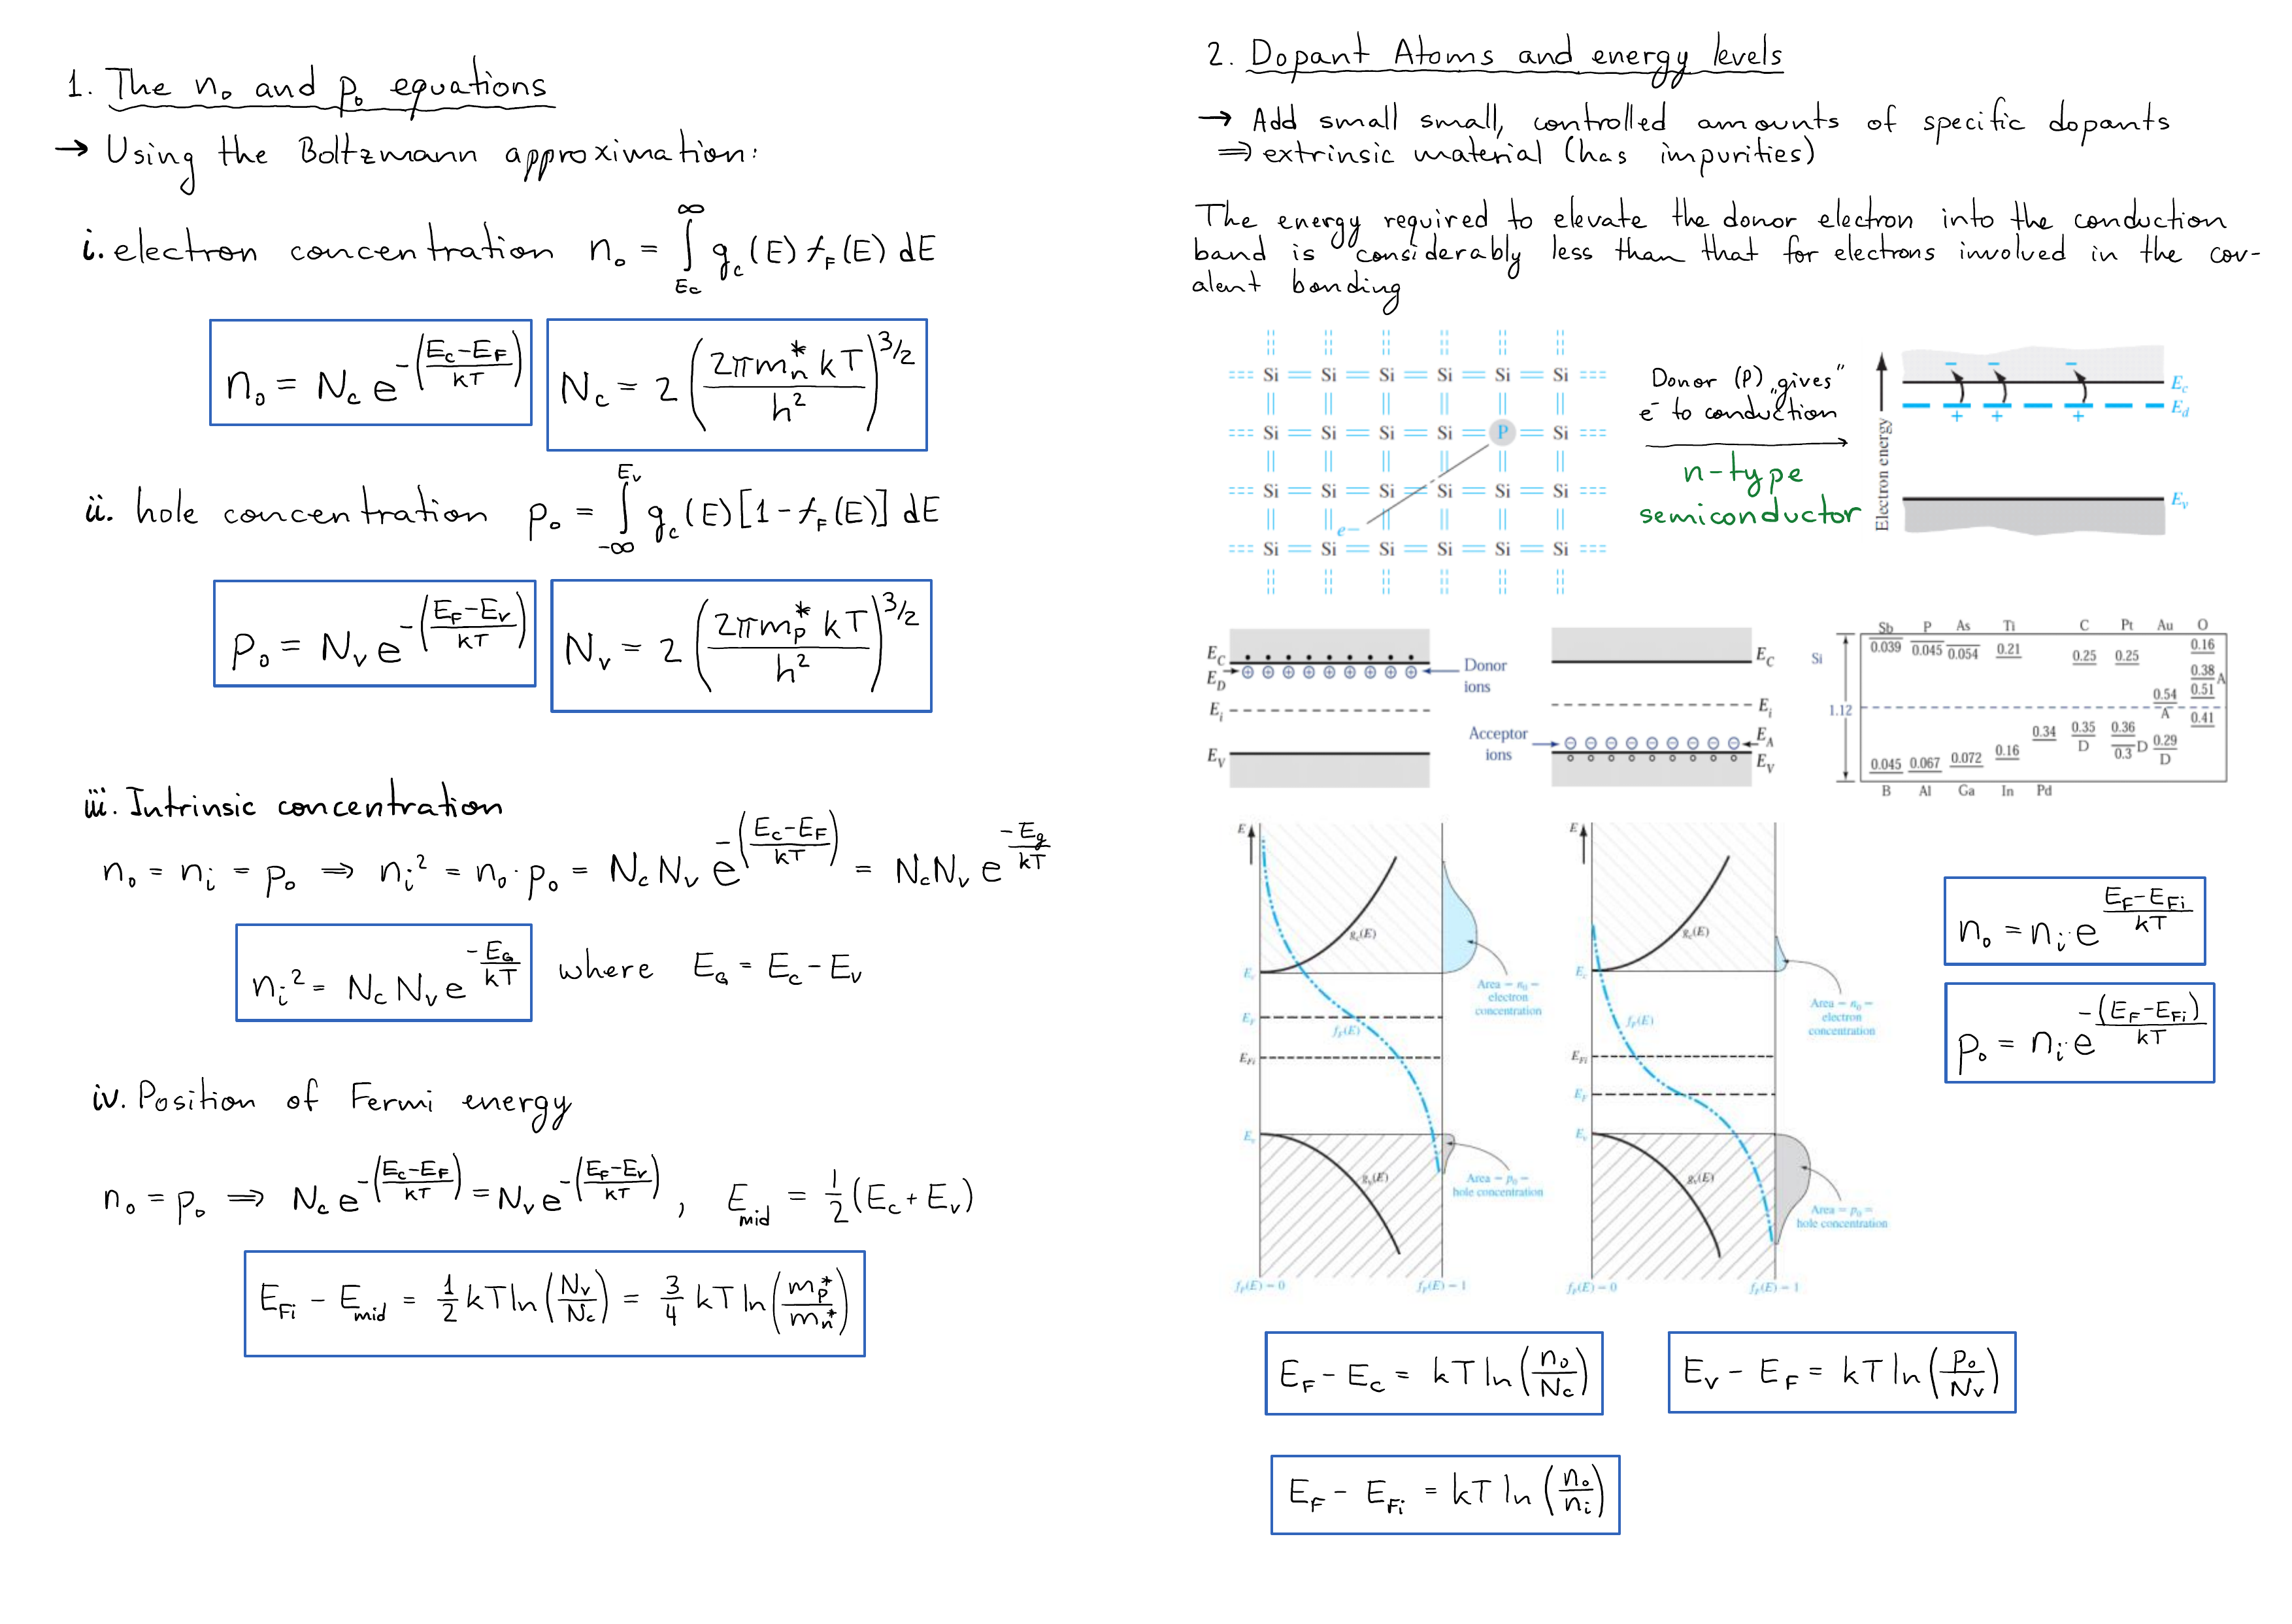 1. The n₀ and p₀ equations
→ Using the Boltzmann approximation:
i. electron concentration n₀ = ∫_{Ec}^{∞} g_c(E) f_F(E) dE
n₀ = N_c e^{-((E_c-E_F)/kT)}
N_c = 2 (2πm_n^* kT / h²)^{3/2}
ii. hole concentration p₀ = ∫_{-∞}^{E_v} g_c(E)[1-f_F(E)] dE
p₀ = N_v e^{-((E_F-E_v)/kT)}
N_v = 2 (2πm_p^* kT / h²)^{3/2}
iii. Intrinsic concentration
n₀ = n_i = p₀ ⇒ n_i² = n₀·p₀ = N_c N_v e^{-((E_c-E_F)/kT)} = N_c N_v e^{-E_g/kT}
n_i² = N_c N_v e^{-E_G/kT} where E_G = E_c - E_v
iv. Position of Fermi energy
n₀ = p₀ ⇒ N_c e^{-((E_c-E_F)/kT)} = N_v e^{-((E_F-E_v)/kT)}, E_mid = ½(E_c+E_v)
E_Fi - E_mid = ½ kT ln(N_v/N_c) = ¾ kT ln(m_p^*/m_n^*)
2. Dopant Atoms and energy levels
→ Add small small, controlled amounts of specific dopants
⇒ extrinsic material (has impurities)
The energy required to elevate the donor electron into the conduction
band is considerably less than that for electrons involved in the cov-
alent bonding
Si Si Si Si Si Si
Si Si Si Si P Si
Si Si Si Si Si Si
e−
Si Si Si Si Si Si
Donor (P) „gives"
e⁻ to conduction
n-type
semiconductor
Electron energy
− − −
E_c
E_d
+ + +
E_v
E_C
E_D
Donor
ions
E_i
E_V
E_C
E_i
Acceptor
ions
E_A
E_V
Sb P As Ti C Pt Au O
Si
0.039 0.045 0.054 0.21 0.25 0.25 0.16
0.38 A
0.54 0.51
1.12
A 0.41
0.34 0.35 0.36
D 0.3 D 0.29
D
0.045 0.067 0.072 0.16
B Al Ga In Pd
E
g_c(E)
E_c
Area = n₀ =
electron
concentration
E_F
f_F(E)
E_Fi
E_v
g_v(E)
Area = p₀ =
hole concentration
f_F(E) = 0 f_F(E) = 1
E
g_c(E)
E_c
Area = n₀ =
electron
concentration
f_F(E)
E_Fi
E_F
E_v
g_v(E)
Area = p₀ =
hole concentration
f_F(E) = 0 f_F(E) = 1
n₀ = n_i·e^{(E_F-E_Fi)/kT}
p₀ = n_i·e^{-(E_F-E_Fi)/kT}
E_F - E_c = kT ln(n₀/N_c)
E_v - E_F = kT ln(p₀/N_v)
E_F - E_Fi = kT ln(n₀/n_i)